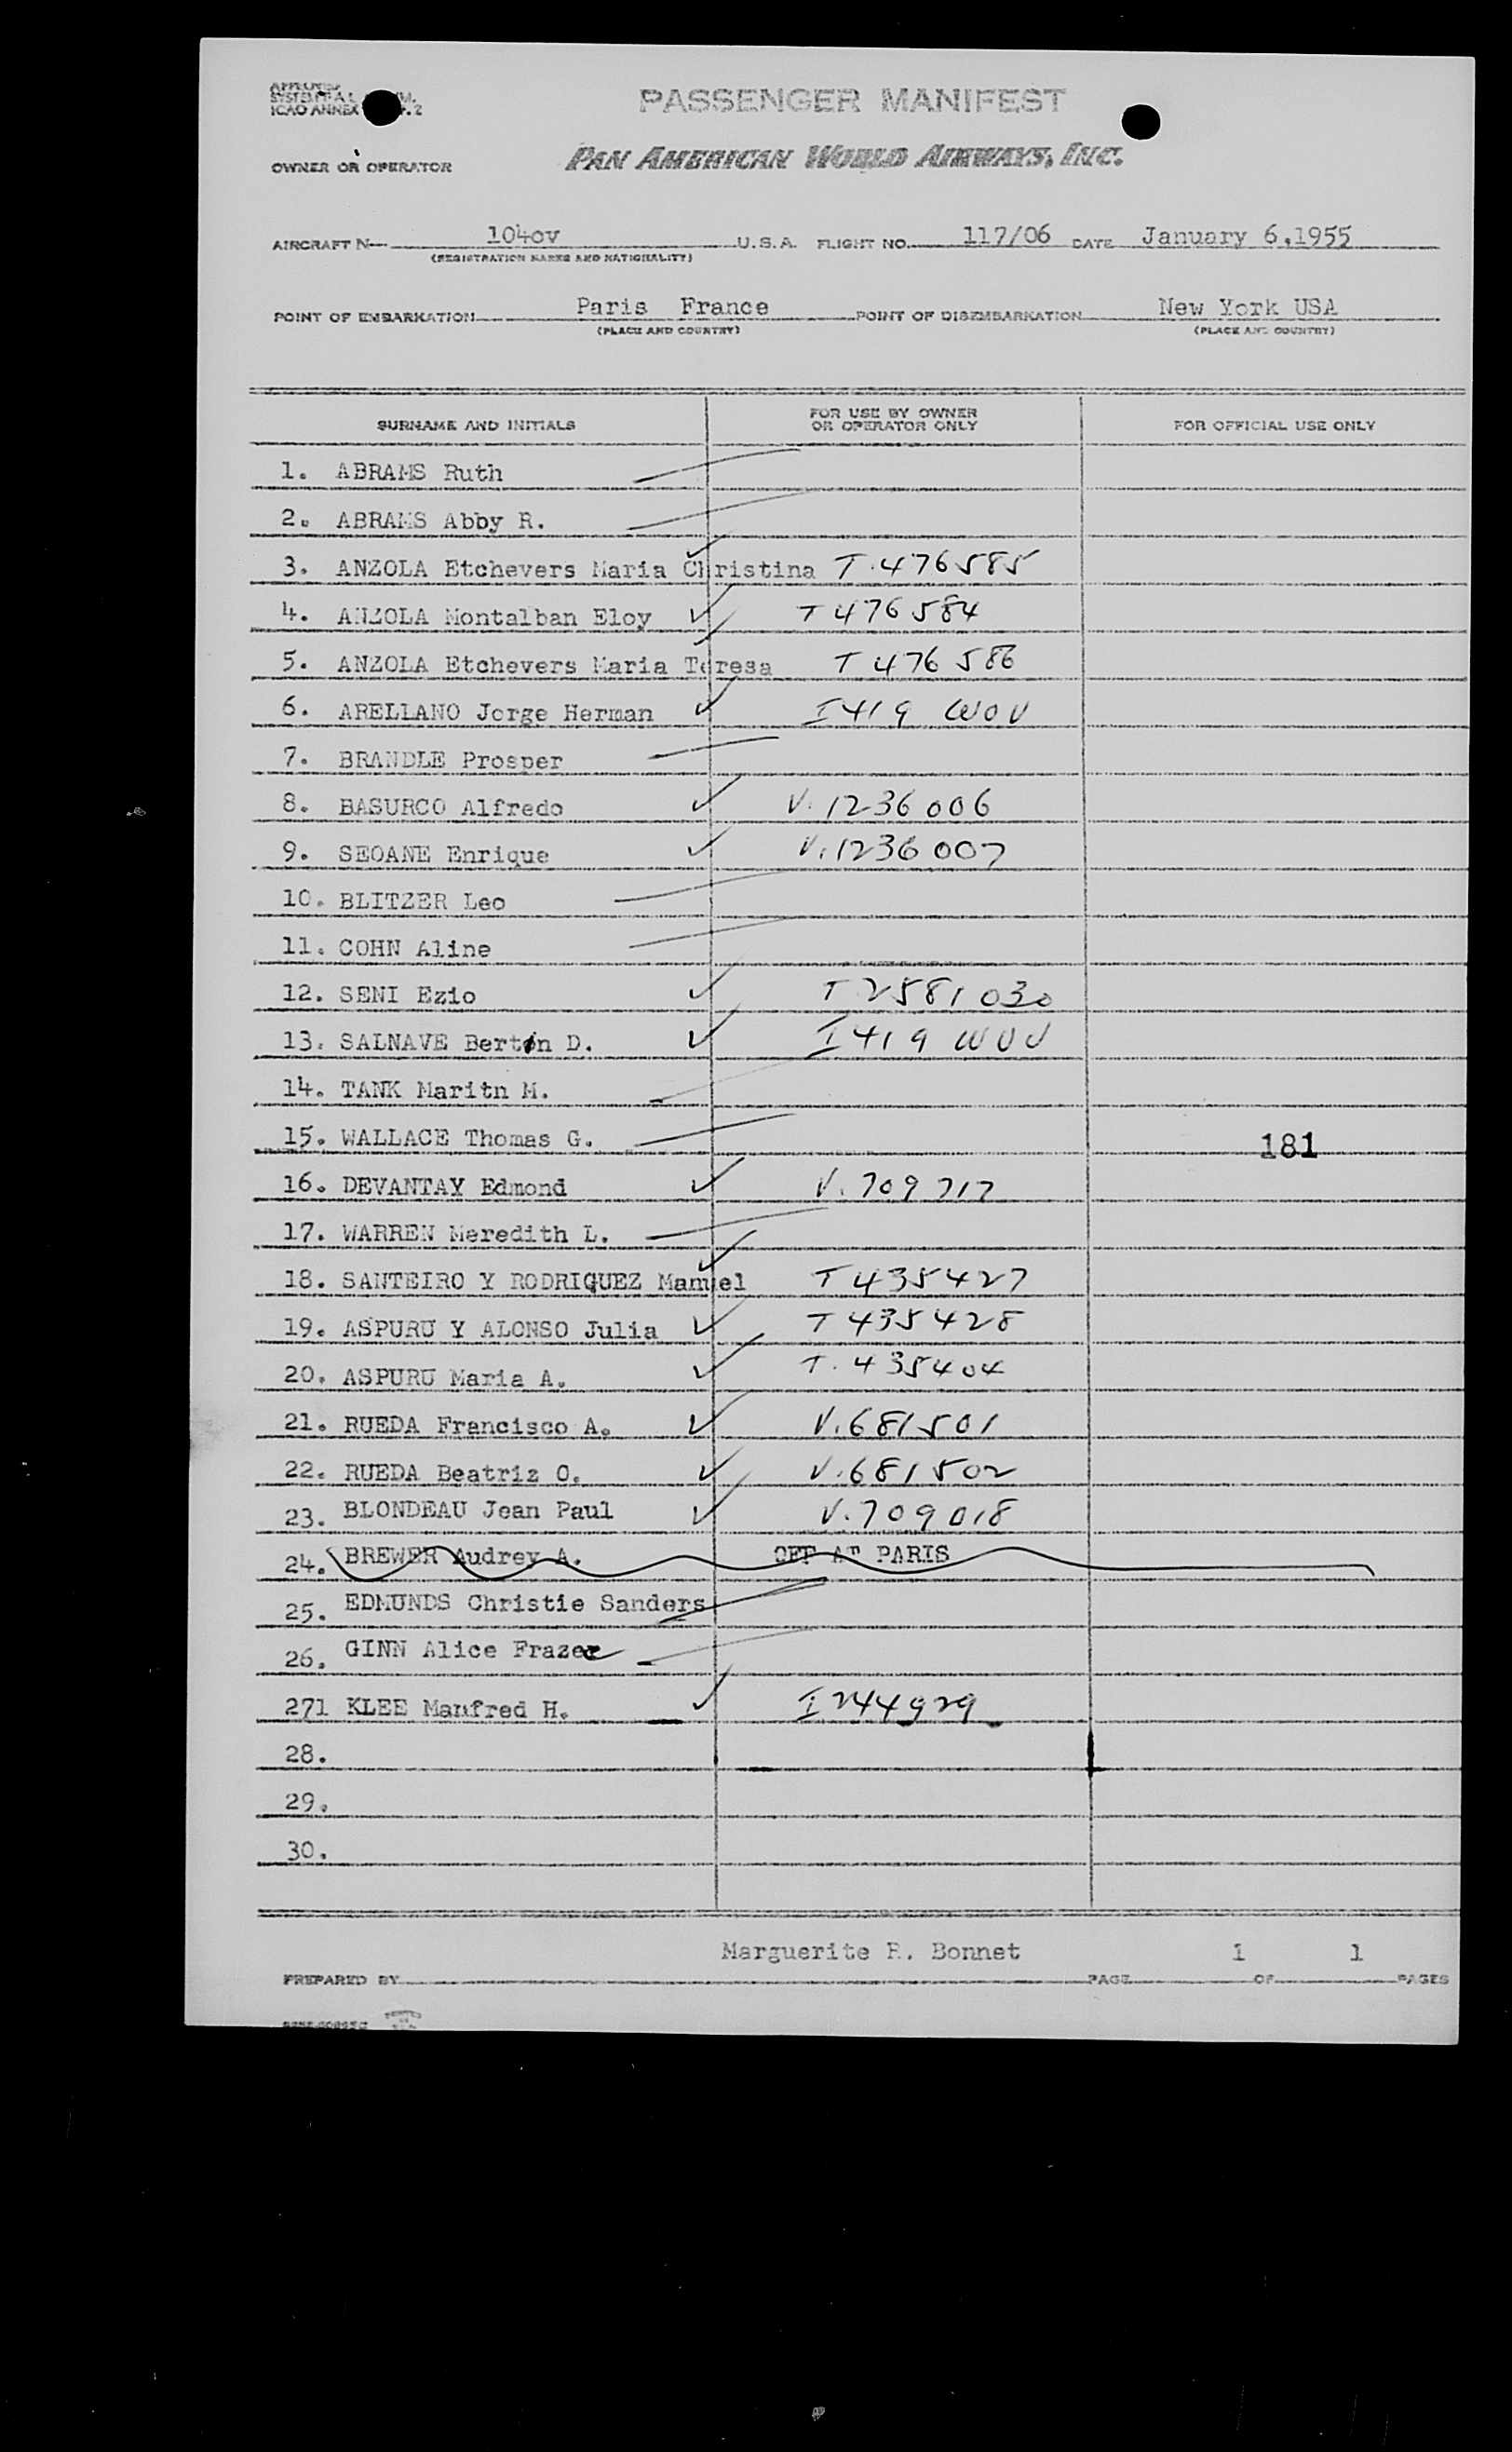 APPROVED
ICAO ANNEX
PASSENGER MANIFEST
OWNER OR OPERATOR
PAN AMERICAN WORLD AIRWAYS, INC.
AIRCRAFT N— 1040V U.S.A. FLIGHT NO. 117/06 DATE January 6,1955
(REGISTRATION MARKS AND NATIONALITY)
POINT OF EMBARKATION Paris France POINT OF DISEMBARKATION New York USA
(PLACE AND COUNTRY) (PLACE AND COUNTRY)
SURNAME AND INITIALS FOR USE BY OWNER OR OPERATOR ONLY FOR OFFICIAL USE ONLY
1. ABRAMS Ruth
2. ABRAMS Abby R.
3. ANZOLA Etchevers Maria Christina T.476585
4. ANZOLA Montalban Eloy T 476584
5. ANZOLA Etchevers Maria Teresa T 476586
6. ARELLANO Jorge Herman I 419 WOV
7. BRANDLE Prosper
8. BASURCO Alfredo V. 1236006
9. SEOANE Enrique V. 1236007
10. BLITZER Leo
11. COHN Aline
12. SENI Ezio T 2581030
13. SALNAVE Berton D. I 419 WOV
14. TANK Maritn M.
15. WALLACE Thomas G. 181
16. DEVANTAY Edmond V. 709717
17. WARREN Meredith L.
18. SANTEIRO Y RODRIQUEZ Manuel T 435427
19. ASPURU Y ALONSO Julia T 435428
20. ASPURU Maria A. T. 435404
21. RUEDA Francisco A. V. 681501
22. RUEDA Beatriz O. V. 681502
23. BLONDEAU Jean Paul V. 709018
24. BREWER Audrey A. OFF AT PARIS
25. EDMUNDS Christie Sanders
26. GINN Alice Frazer
271 KLEE Manfred H. I 244929
28.
29.
30.
PREPARED BY Marguerite R. Bonnet PAGE 1 OF 1 PAGES